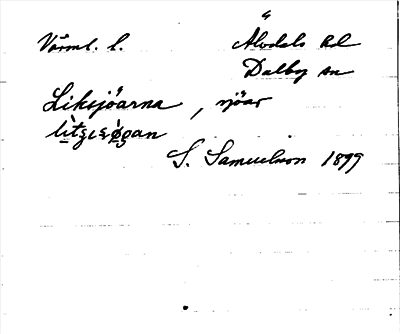 Värml. l. Älvdals hd
Dalby sn
Liksjöarna, sjöar
S. Samuelson 1899